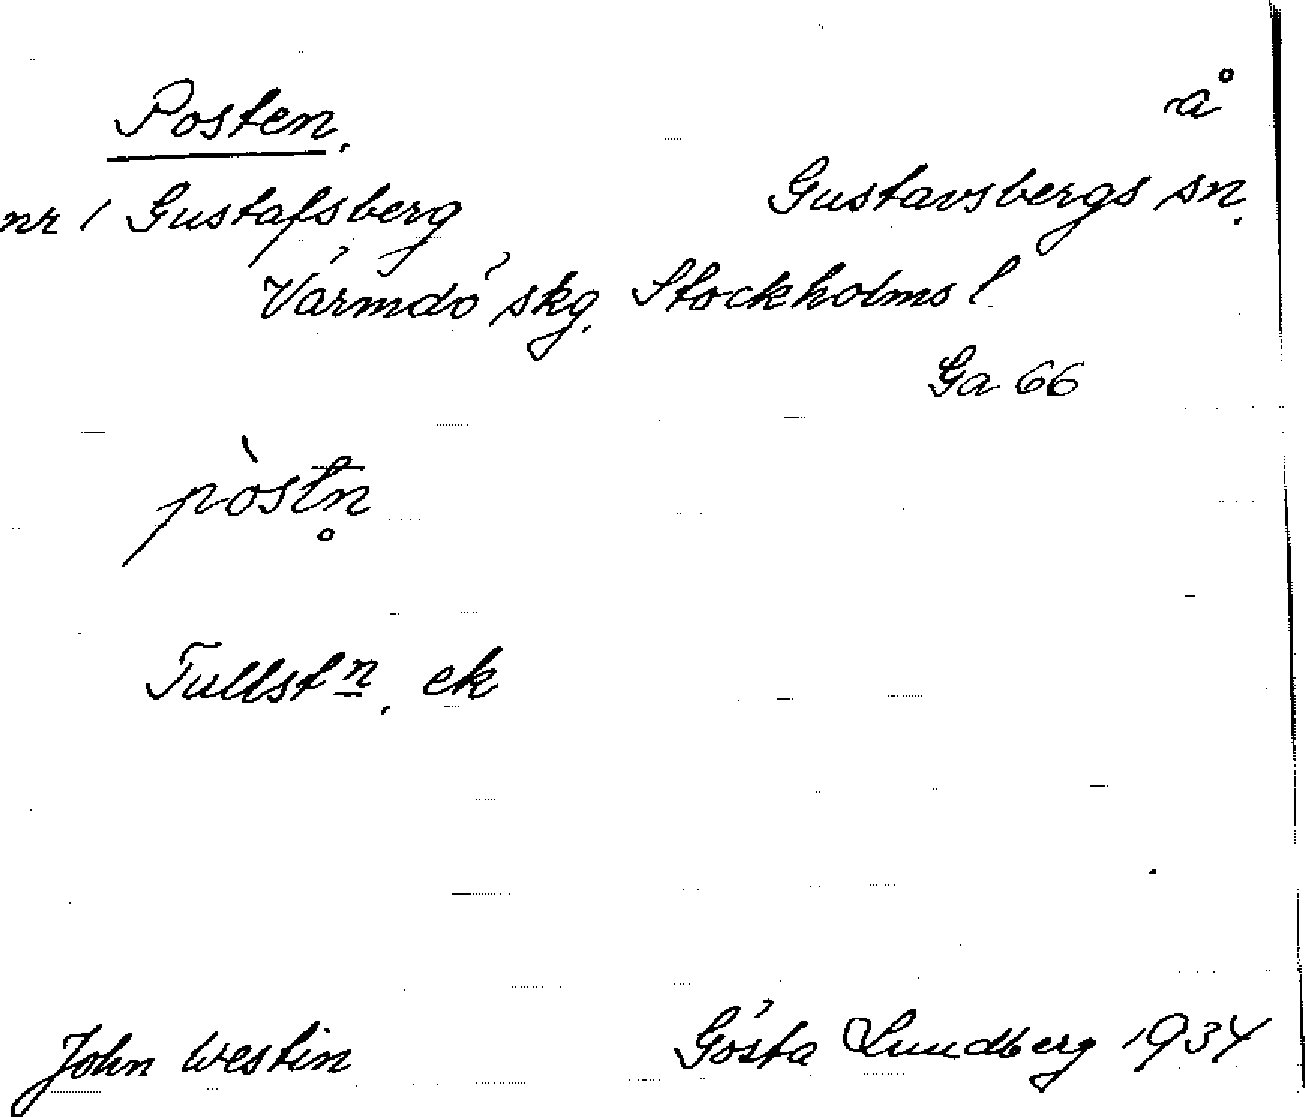 Posten. å
nr 1 Gustafsberg Gustavsbergs sn.
Värmdö skg. Stockholms l.
Ga 66
pòstn̥
Tullstn, ek
John Westin Gösta Lundberg 1934